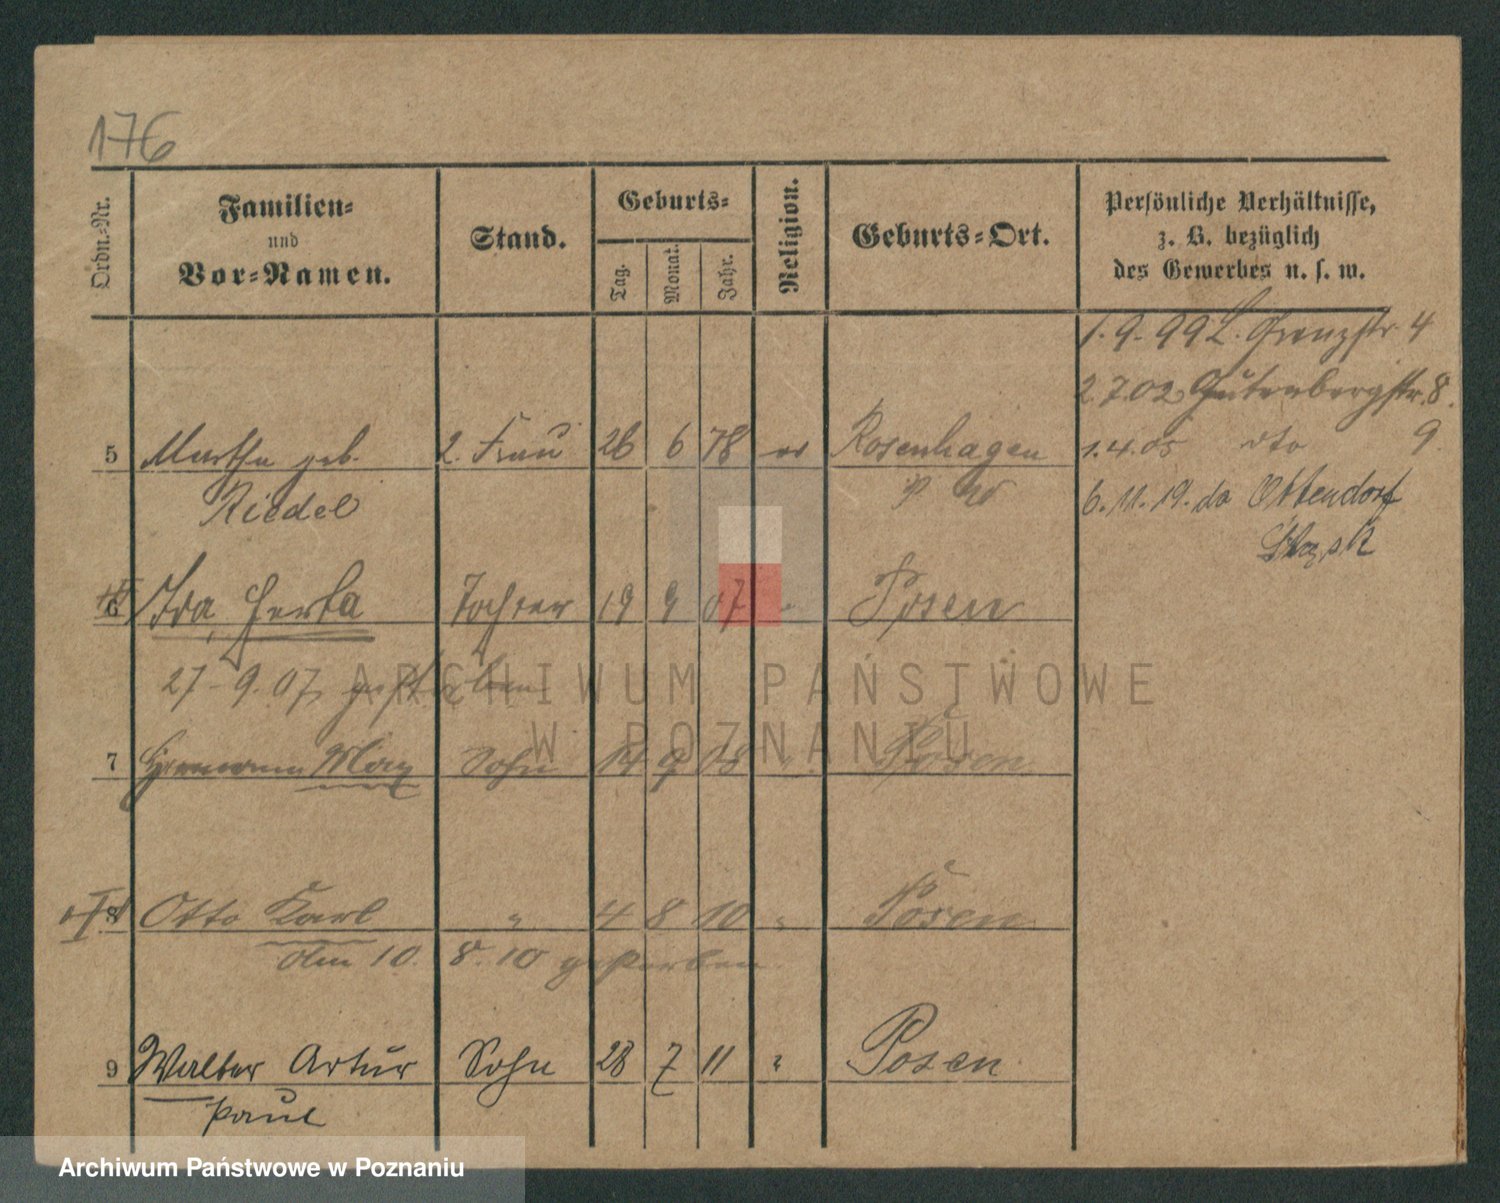 176
Ordn.-Nr.
Familien-
und
Vor-Namen.
Stand.
Geburts-
Tag.
Monat.
Jahr.
Religion.
Geburts-Ort.
Persönliche Verhältnisse,
z. B. bezüglich
des Gewerbes u. s. w.
1.9.99 L. Grenzstr. 4
2.7.02 Gutenbergstr. 8.
5 Martha geb. 2. Frau 26 6 78 ev Rosenhagen 1.4.05 dto 9.
Riedel 6.11.19. do Ottendorf
6 Ida Herta Tochter 19 9 07 " Posen
27.9.07 gestorben
ARCHIWUM PAŃSTWOWE
W POZNANIU
7 Hermann Max Sohn 14 9 08 " Posen
8 Otto Karl " 4 8 10 " Posen
Am 10. 8. 10 gestorben
9 Walter Artur Sohn 28 7 11 " Posen
Paul
Archiwum Państwowe w Poznaniu